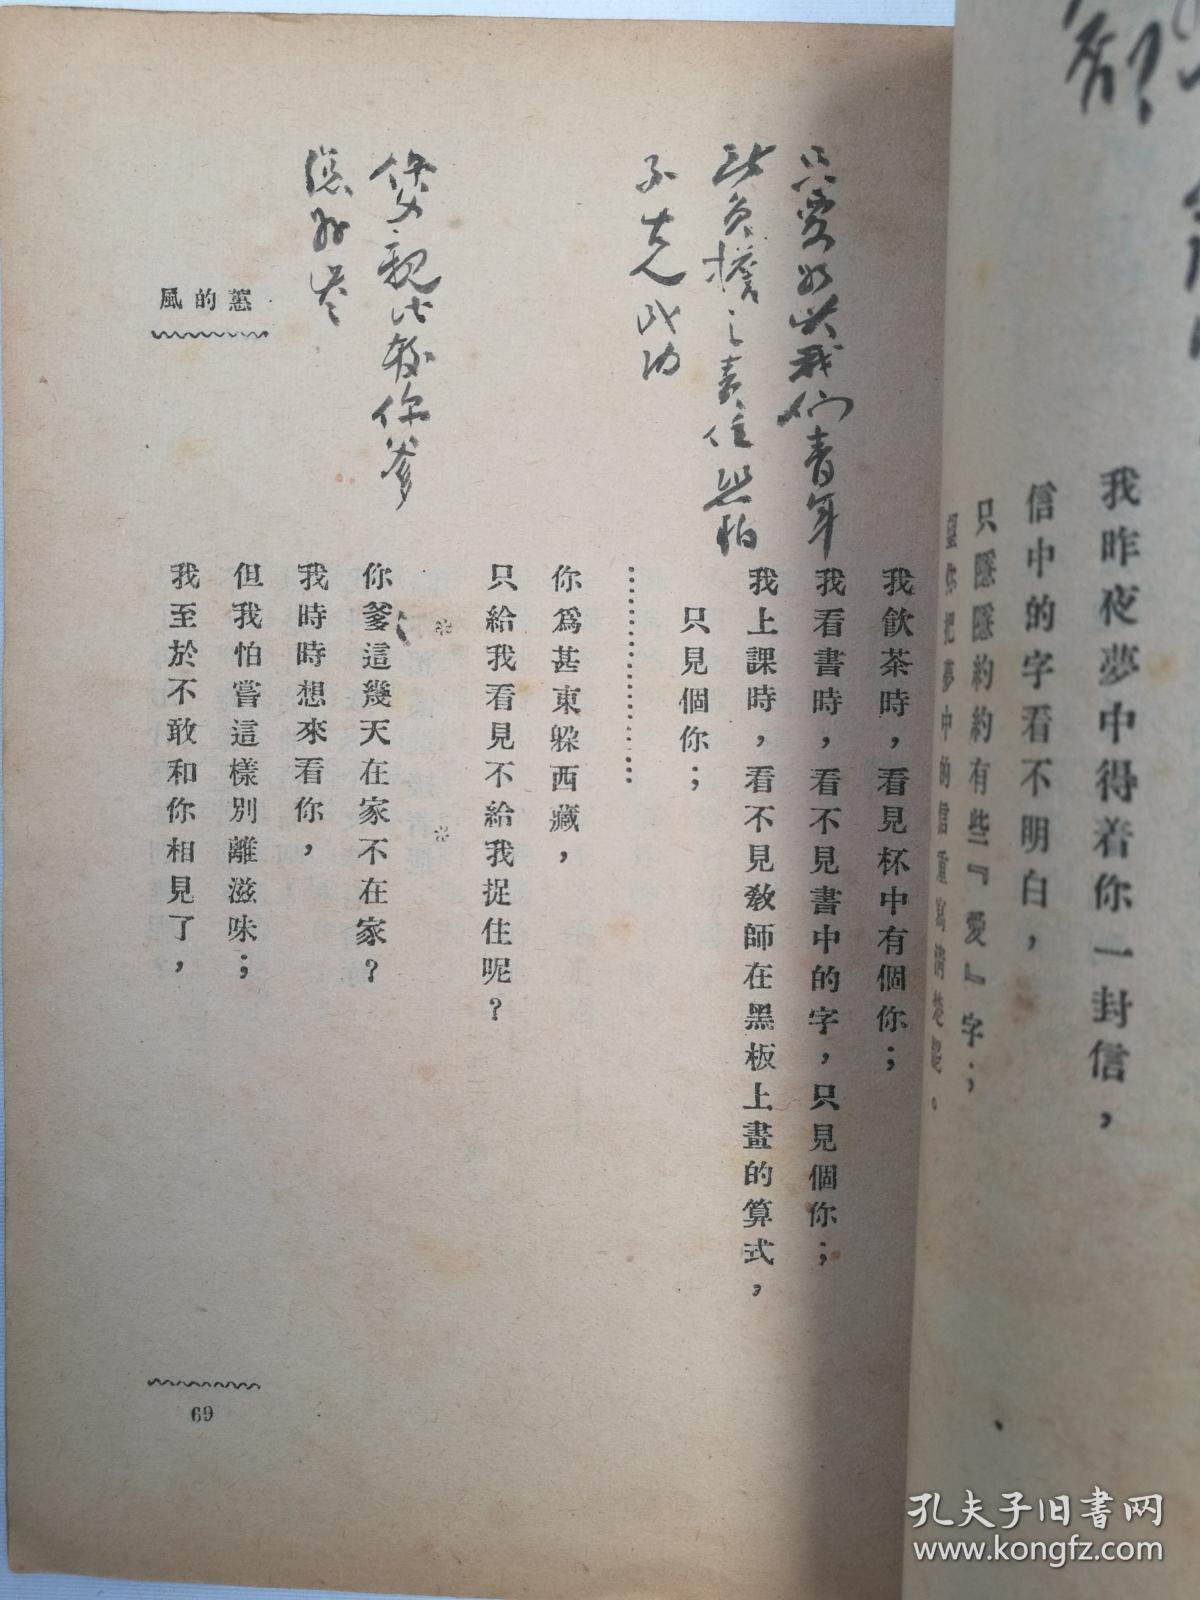 我昨夜夢中得着你一封信，
信中的字看不明白，
只隱隱約約有些『愛』字；
望你把夢中的信重寫清楚罷。
我飲茶時，看見杯中有個你；
我看書時，看不見書中的字，只見個你；
我上課時，看不見教師在黑板上畫的算式，
只見個你；
………………
你爲甚東躱西藏，
只給我看見不給我捉住呢？
＊　＊
你爹這幾天在家不在家？
我時時想來看你，
但我怕嘗這樣別離滋味；
我至於不敢和你相見了，
青年
之責任恐怕
不
成功
父親比較你爹
風的蕙
69
孔夫子旧书网
www.kongfz.com